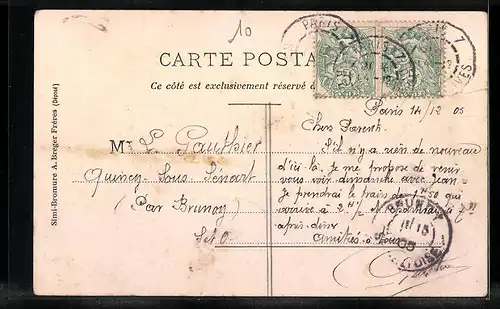 10
CARTE POSTA
Ce côté est exclusivement réservé à
PARIS
7
Paris 14/12 05
Chers Parents
S'il n'y a rien de nouveau
d'ici là je me propose de venir
vous voir dimanche avec Jean
Je prendrai le train de 1 H 50 qui
arrive à 2 H ½
après-dîner
Amitiés à tous
M r L Gauthier
Quincy-sous-Sénart
(Par Brunoy)
S et O
BRUNOY
05
ET-OISE
Simi-Bromure A. Breger Frères (Déposé)